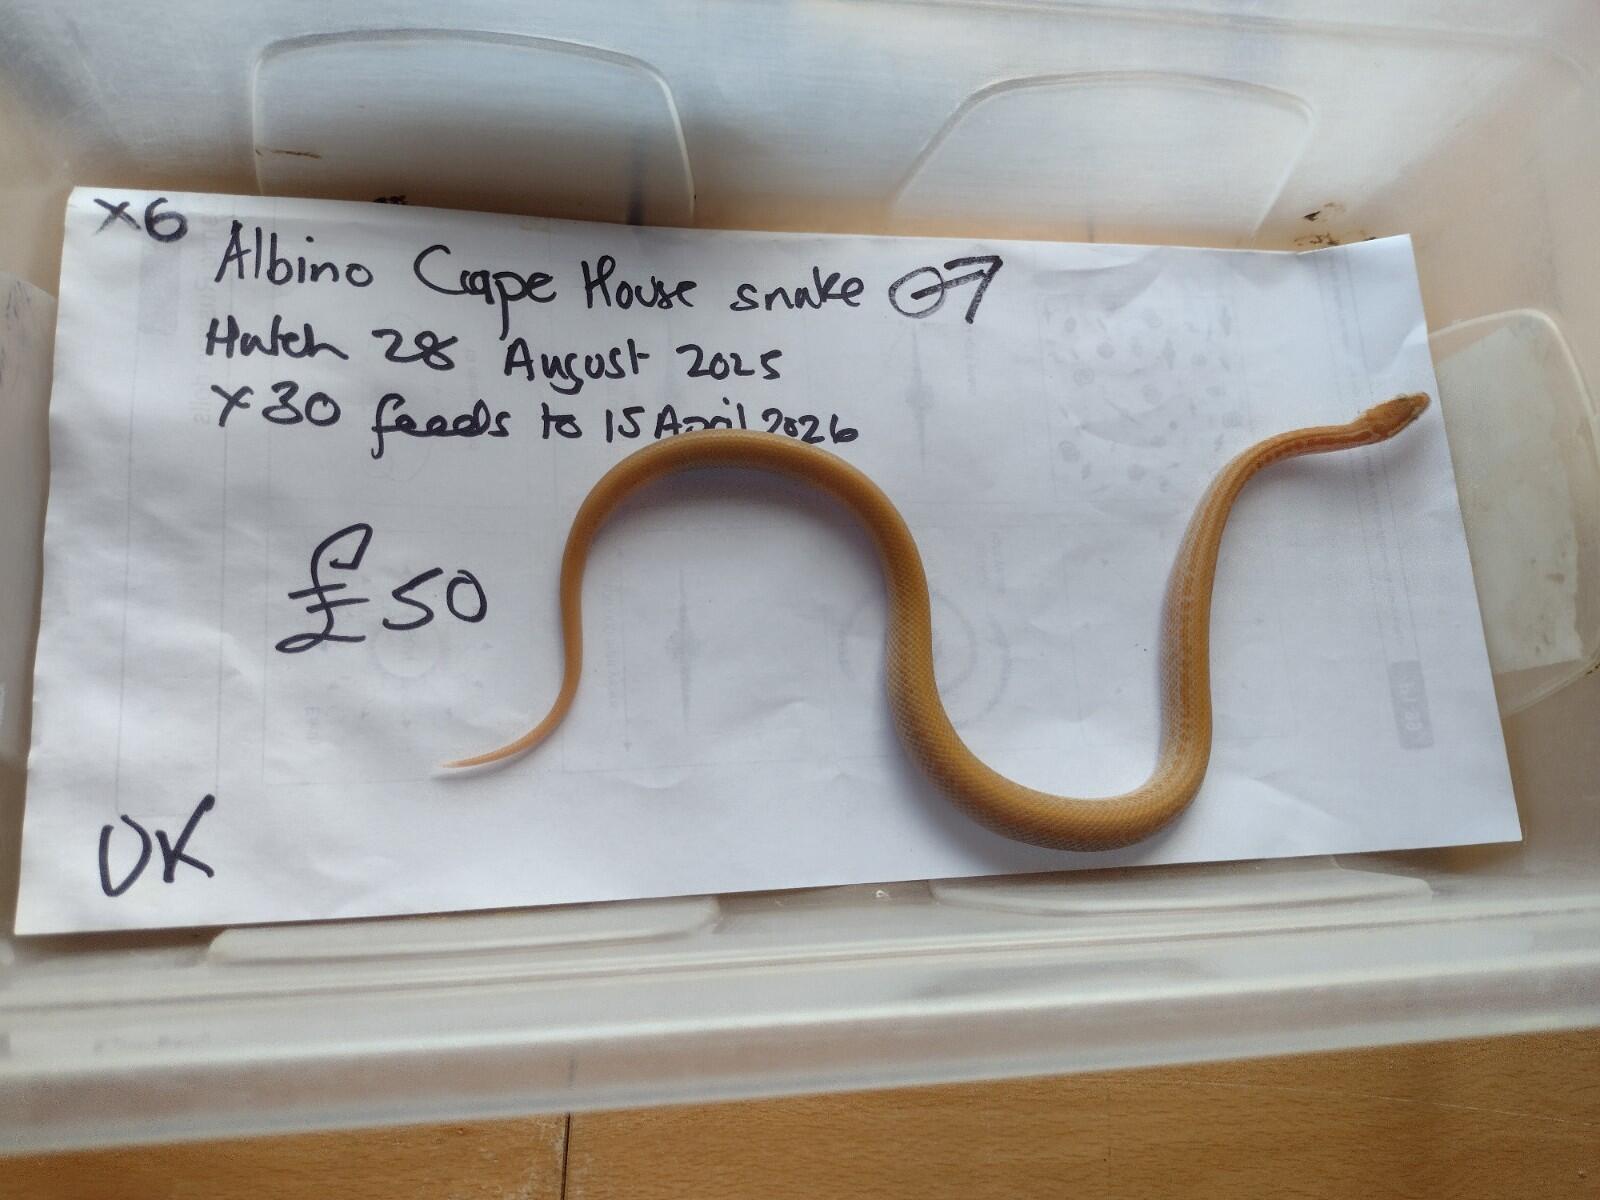 x6
Albino Cape House snake ♂
Hatch 28 August 2025
x30 feeds to 15 April 2026
£50
UK